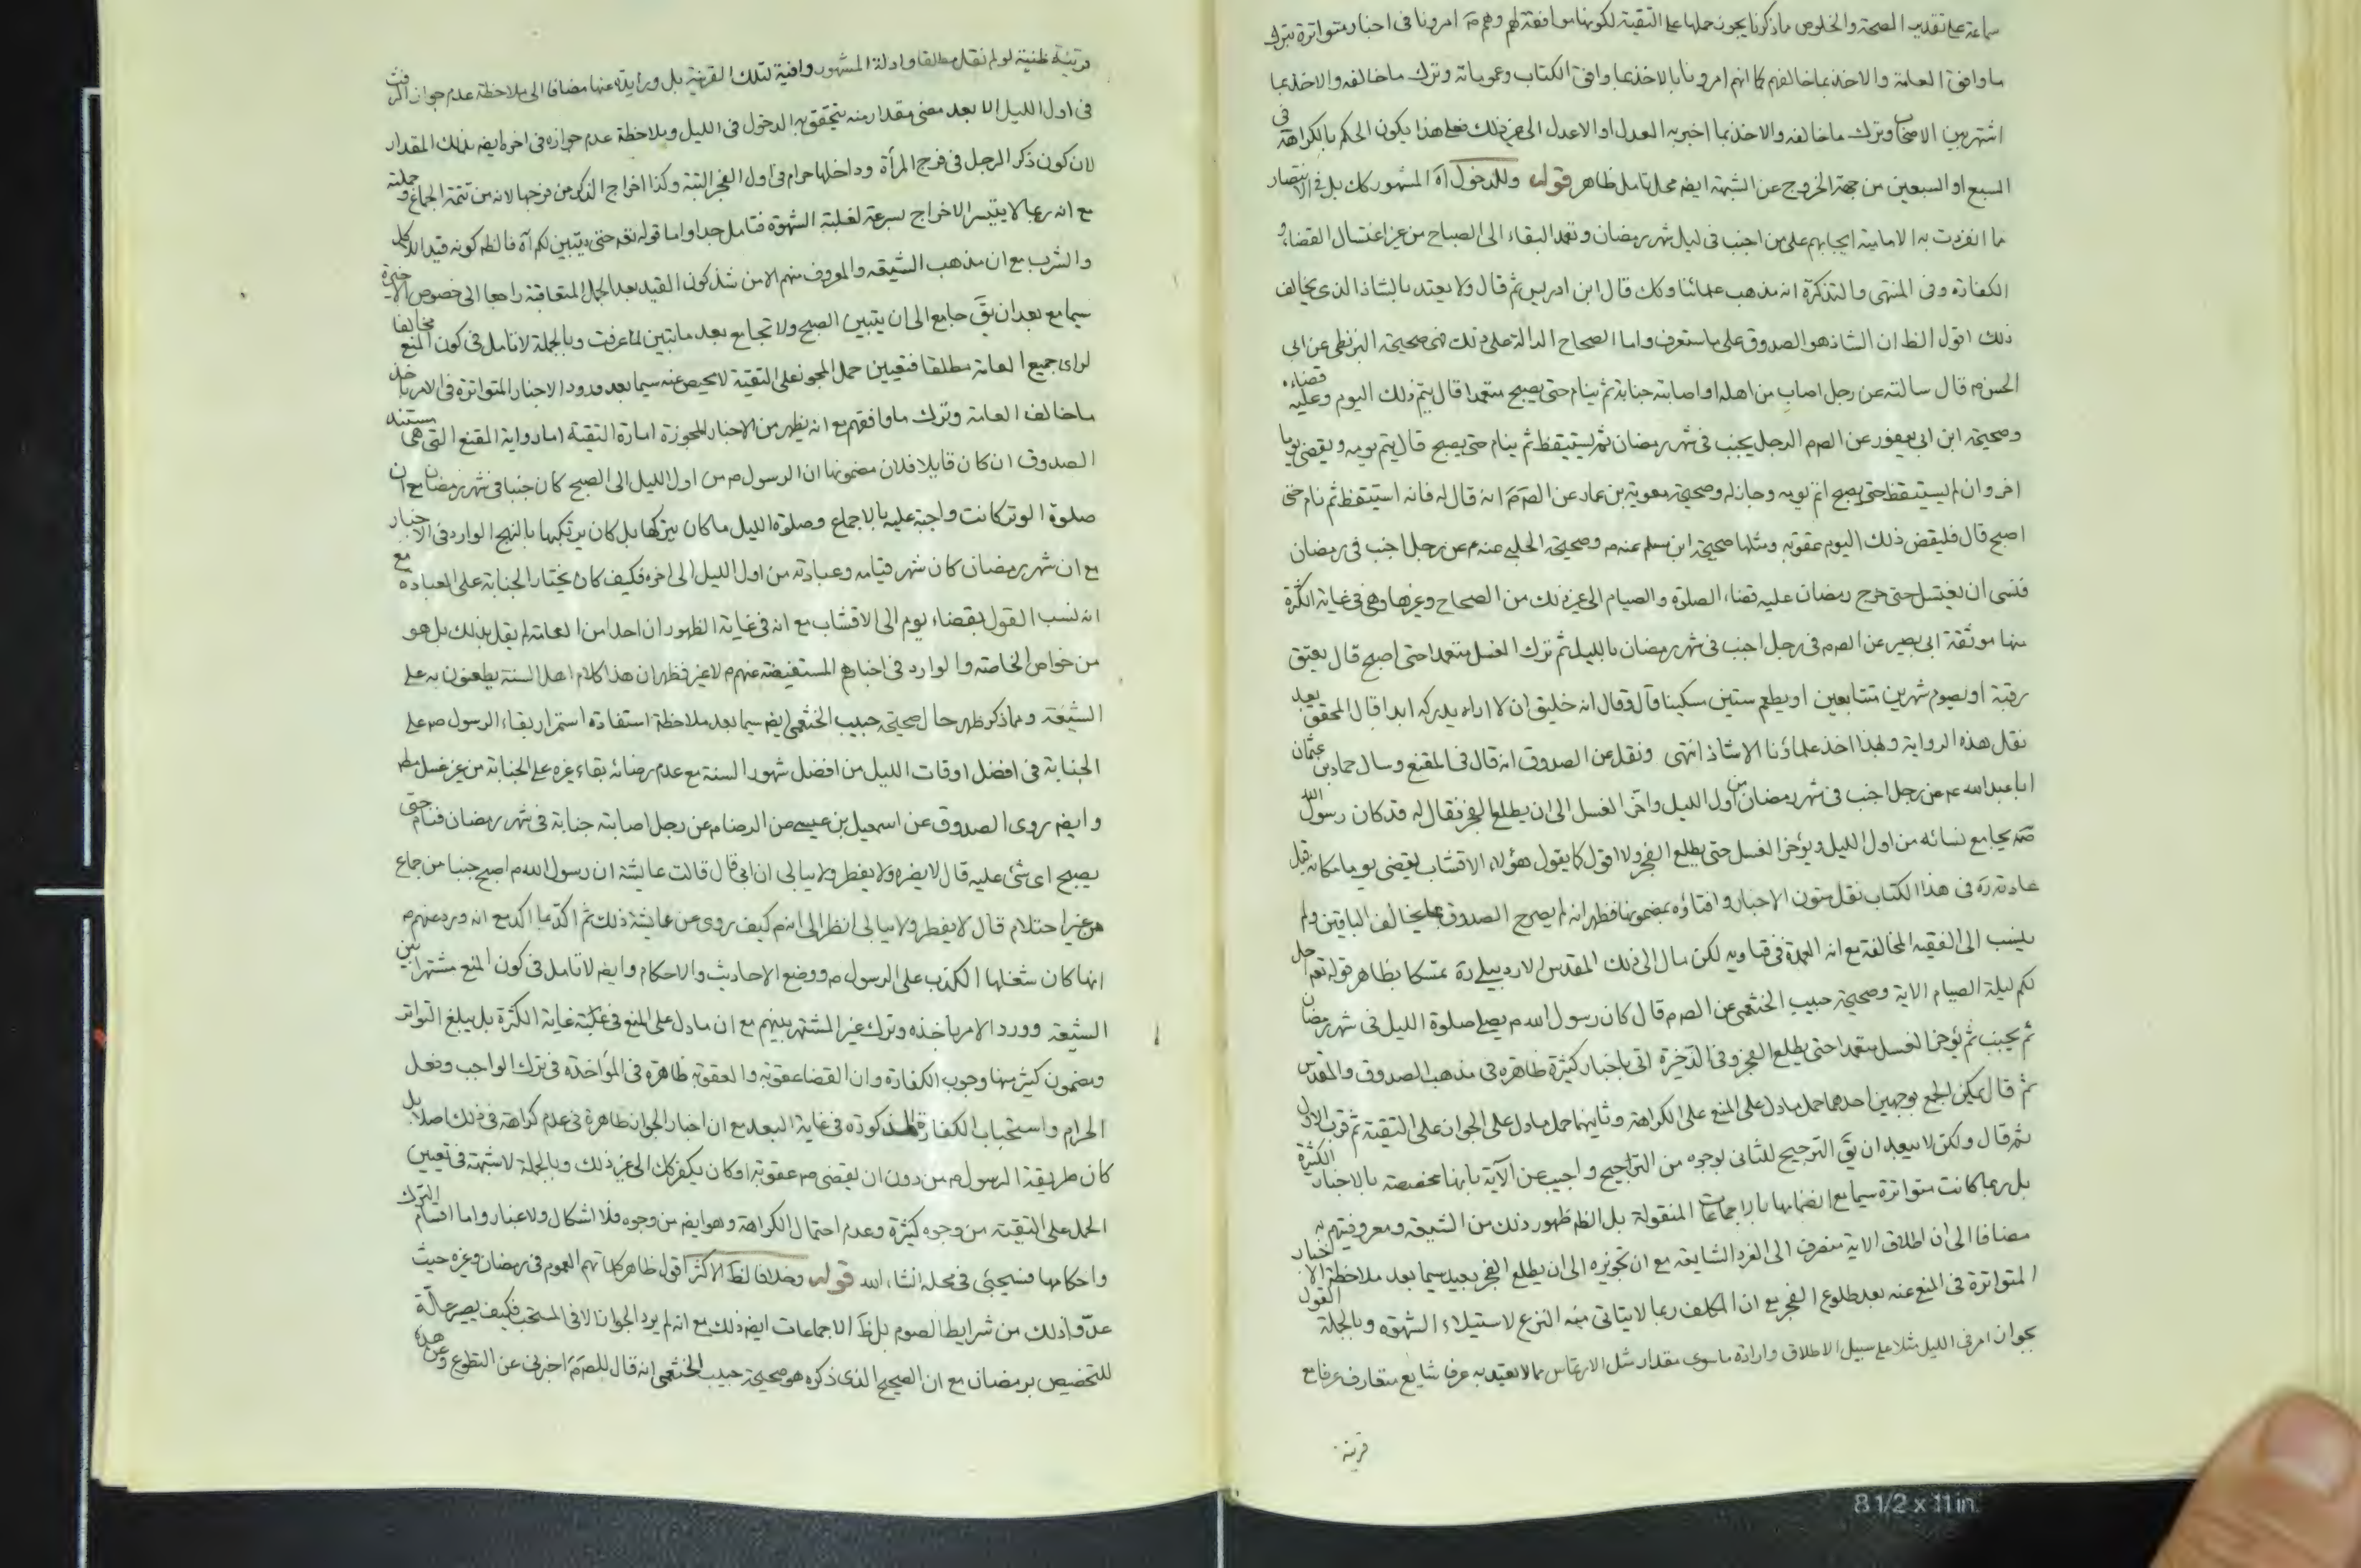 سماعة على تقدير الصحة والخلوص ماذكرنا يجوز حملها على التقية لكونها موافقة لهم وهم مَ امرونا فى اخبار متواترة بترك
ما وافق العامة والاخذ بما خالفهم كما انهم امرونا بالاخذ بما وافق الكتاب وعموماته وترك ما خالفه والاخذ بما
اشتهر بين الاصحاب وترك ما خالفه والاخذ بما اخبر به العدل او الاعدل الى غير ذلك فعلى هذا يكون الحكم بالكراهة فى
السبع او السبعين من جهة الخروج عن الشبهة ايضه محل تامل ظاهر قوله وللدخول آه المشهور كك بل فى الانتصار
مما انفردت به الامامية ايجابهم على من اجنب فى ليل شهر رمضان وتعمد البقاء الى الصباح من غير اغتسال القضاء و
الكفارة وفى المنتهى والتذكرة انه مذهب علمائنا وكك قال ابن ادريس ثم قال ولا يعتد بالشاذ الذى يخالف
ذلك اقول الظ ان الشاذ هو الصدوق على ما ستعرف واما الصحاح الدالة على ذلك فهى صحيحة البزنطى عن ابى
الحسن م قال سالته عن رجل اصاب من اهله او اصابته جنابة ثم ينام حتى يصبح متعمدا قال يتم ذلك اليوم وعليه قضاءه
وصحيحة ابن ابى يعفور عن الصم الرجل يجنب فى شهر رمضان ثم يستيقظ ثم ينام حتى يصبح قال يتم يومه ويقضى يوما
اخر وان لم يستيقظ حتى يصبح اتم يومه وجاز له وصحيحة معوية بن عمار عن الصَمَ انه قال له فانه استيقظ ثم نام حتى
اصبح قال فليقض ذلك اليوم عقوبة ومثلها صحيحة ابن مسلم عنه م وصحيحة الحلبى عنه م عن رجل اجنب فى رمضان
فنسى ان يغتسل حتى خرج رمضان عليه قضاء الصلوة والصيام الى غير ذلك من الصحاح وغيرها وهى فى غاية الكثرة
منها موثقة ابى بصير عن الصم فى رجل اجنب فى شهر رمضان بالليل ثم ترك الغسل متعمدا حتى اصبح قال يعتق
رقبة او يصوم شهرين متتابعين او يطعم ستين مسكينا قال وقال انه خليق ان لا اراه يدركه ابدا قال المحقق بعد
نقل هذه الرواية ولهذا اخذ علماؤنا الا شاذ انتهى ونقل عن الصدوق انه قال فى المقنع وسال حماد بن عثمان
ابا عبد الله ع عن رجل اجنب فى شهر رمضان من اول الليل واخّر الغسل الى ان يطلع الفجر فقال له قد كان رسول الله
صَه يجامع نسائه من اول الليل ويؤخر الغسل حتى يطلع الفجر ولا اقول كما يقول هؤلاء الاقشاب يقضى يوما مكانه قبل
عادته ره فى هذا الكتاب نقل متون الاخبار وافتاؤه بمضمونها فظهر انه لم يصرح الصدوق بما يخالف الباقين ولم
ينسب الى الفقيه المخالفة مع انه العمدة فى فتاويه لكن مال الى ذلك المقدس الاردبيلى ره متمسكا بظاهر قوله تعه احل
لكم ليلة الصيام الاية وصحيحة حبيب الخثعمى عن الصم قال كان رسول الله م يصلى صلوة الليل فى شهر رمضان
ثم يجنب ثم يؤخر الغسل متعمدا حتى يطلع الفجر وفى الذخيرة اتى باخبار كثيرة ظاهرة فى مذهب الصدوق والمقدس
ثم قال يمكن الجمع بوجهين احدهما حمل مادل على المنع على الكراهة وثانيهما حمل مادل على الجواز على التقية ثم قرب الاول
ثم قال ولكن لا يبعد ان يقَ الترجيح للثانى بوجوه من التراجيح واجيب عن الآية بانها مخصصة بالاخبار الكثيرة
بل ربما كانت متواترة سيما مع انضمامها بالاجماعات المنقولة بل الظ ظهور ذلك من الشيعة ومعروفيتهم به
مضافا الى ان اطلاق الاية منصرف الى الفرد الشايعه مع ان تجويزه الى ان يطلع الفجر بعيد سيما بعد ملاحظة الاخبار
المتواترة فى المنع عنه بعد طلوع الفجر مع ان المكلف ربما لا يتاتى منه النزع لاستيلاء الشهوة وبالجملة القول
بجواز امر فى الليل مثلا على سبيل الاطلاق وارادة ماسوى مقدار مثل الارتماس مما لا يعتد به عرفا شايع متعارف عرفا مع
قرينة
قرينة ظنية لو لم نقل مطلقا وادلة المشهور وافية لتلك القرينة بل وزايدة عنها مضافا الى ملاحظة عدم جواز الرفث
فى اول الليل الا بعد مضى مقدار منه يتحقق به الدخول فى الليل وملاحظة عدم جوازه فى اخره ايضه بذلك المقدار
لان كون ذكر الرجل فى فرج المرأة وداخلها حرام فى اول الفجر البتة وكذا اخراج الذكر من فرجها لانه من تتمة الجماع وجملته
مع انه ربما لا يتيسر الاخراج بسرعة لغلبة الشهوة فتامل جدا واما قوله تعه حتى يتبين لكم آه فالظ كونه قيد الاكل
والشرب مع ان مذهب الشيعة والمعروف منهم الا من شذ كون القيد بعد الجمل المتعاقبة راجعا الى خصوص الاخيرة
سيما مع بعد ان يقَ جامع الى ان يتبين الصبح ولا تجامع بعد ما تبين لما عرفت وبالجملة لا تامل فى كون المنع مخالفا
لراى جميع العامة مطلقا فتعيين حمل المجوز على التقية لا محيص عنه سيما بعد ورود الاخبار المتواترة فى الامر باخذ
ماخالف العامة وترك ماوافقهم مع انه يظهر من الاخبار المجوزة امارة التقية اما رواية المقنع التى هى مستند
الصدوق ان كان قايلا فلان مضمونها ان الرسول م من اول الليل الى الصبح كان جنبا فى شهر رمضان مع ان
صلوة الوتر كانت واجبة عليه بالاجماع وصلوة الليل ماكان يتركها بل كان يرتكبها بالنهج الوارد فى الاخبار
مع ان شهر رمضان كان شهر قيامه وعبادته من اول الليل الى اخره فكيف كان يختار الجنابة على العبادة مع
انه نسب القول بقضاء يوم الى الاقشاب مع انه فى غاية الظهور ان احدا من العامة لم يقل بذلك بل هو
من خواص الخاصة والوارد فى اخبارهم المستفيضة عنهم م لا غير فظهر ان هذا كلام اهل السنة يطعنون به على
الشيعة ومما ذكر ظهر حال صحيحة حبيب الخثعمى ايضه سيما بعد ملاحظة استفادة استمرار بقاء الرسول ص على
الجنابة فى افضل اوقات الليل من افضل شهور السنة مع عدم رضائه بقاء غيره على الجنابة من غير غسل مطه
وايضه روى الصدوق عن اسمعيل بن عيسى عن الرضا م عن رجل اصابته جنابة فى شهر رمضان فنام حتى
يصبح اى شئ عليه قال لا يضره ولا يفطر ولا يبالى ان ابى قال قالت عايشة ان رسول الله م اصبح جنبا من جماع
من غير احتلام قال لا يفطر ولا يبالى انظر الى انه م كيف روى عن عايشة ذلك ثم اكد بما اكد مع انه ورد عنهم م
انها كان شغلها الكذب على الرسول م ووضع الاحاديث والاحكام وايضه لا تامل فى كون المنع مشتهرا بين
الشيعة وورد الامر باخذه وترك غير المشتهر بينهم مع ان مادل على المنع فى غاية الكثرة بل يبلغ التواتر
ومضمون كثير منها وجوب الكفارة وان القضا عقوبة والعقوبة ظاهرة فى المؤاخذة فى ترك الواجب وفعل
الحرام واستحباب الكفارة المذكورة فى غاية البعد مع ان اخبار الجواز ظاهرة فى عدم كراهة فى ذلك اصلا بل
كان طريقة الرسول م من دون ان يقضى ص عقوبة او كان يكفر كك الى غير ذلك وبالجملة لا شبهة فى تعيين
الحمل على التقية من وجوه كثيرة وعدم احتمال الكراهة وهو ايضه من وجوه فلا اشكال ولا غبار واما اقسام الترك
واحكامها فسيجئى فى محله انشاء الله قوله وخلافا لظَ الاكثر اقول ظاهر كلماتهم العموم فى رمضان وغيره حيث
عدّوا ذلك من شرايط الصوم بل ظَ الاجماعات ايضه ذلك مع انه لم يرد الجواز الا فى المستحب فكيف يصير حالّة
للتخصيص برمضان مع ان الصحيح الذى ذكره هو صحيحة حبيب الخثعمى انه قال للصَمَ اخبرنى عن التطوع وعن هذه